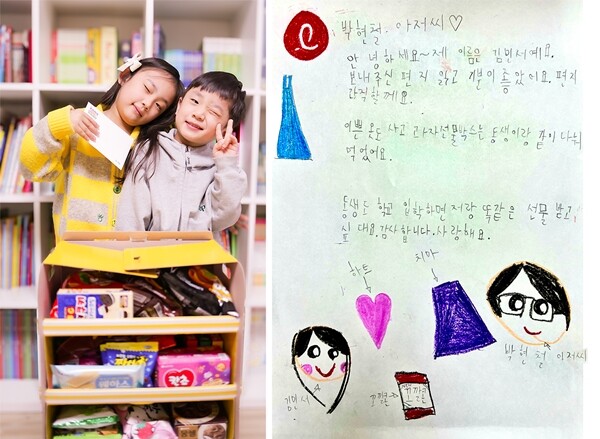 박현철 아저씨♡
안녕하세요~ 제 이름은 김민서예요.
보내주신 편지 읽고 기분이 좋았어요. 편지
간직할께요.
이쁜 옷도 사고 과자선물박스는 동생이랑 같이 나눠
먹었어요.
동생도 학교 입학하면 저랑 똑같은 선물 받고
싶대요. 감사합니다. 사랑해요.
하트
치마
박현철 아저씨
김민서